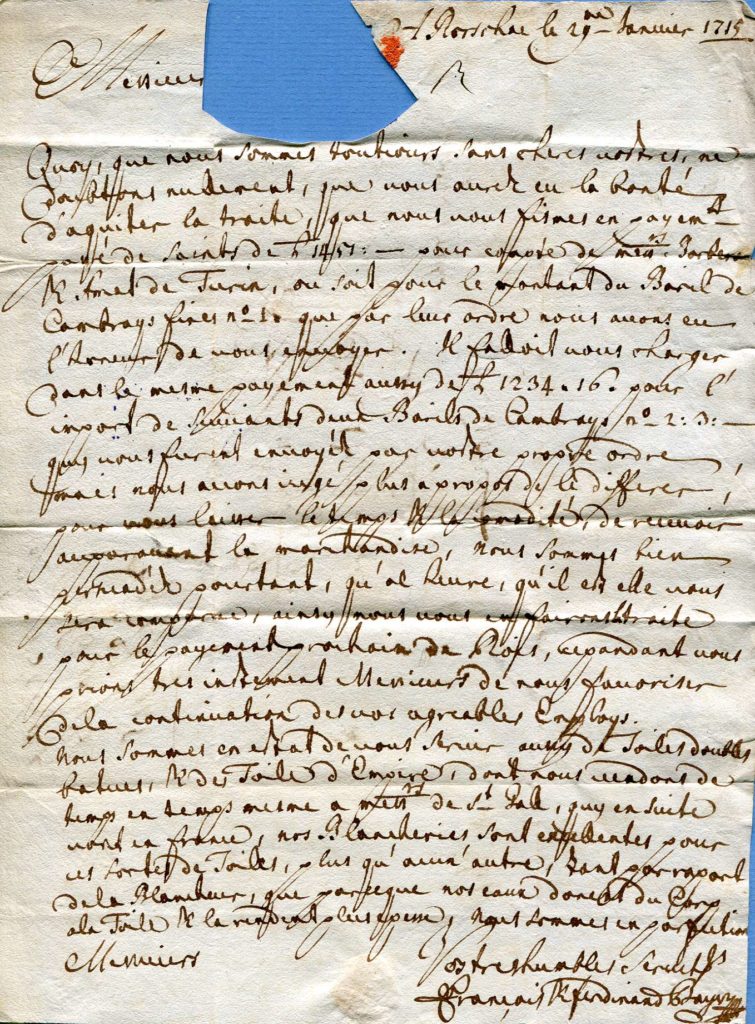 Rorschac le 29me Janvier 1715
Messieurs
Quoy, que nous sommes toutiours sans cheres vostres, ne
doubtons nullement, que vous aurez eu la bonté
d'aquiter la traite, que nous vous fismes en payemt
de Saints de 1451: — pour compte de Messrs
& Amat de Turin, ou soit pour le montant du Baril de
Cambrays fines no 1. que par leur ordre nous avons eu
l'honeur de vous envoyer. Il falloit vous charger
dans le mesme payement aussy de 1234.16. pour l'
import de suivants deux Barils de Cambrays no 2: 3: —
quy vous furent envoyéz par vostre propre ordre
mais nous avons iugé plus à propos de le differer,
pour vous laisser le temps & la de recevoir
auparavant la marchandise, nous sommes bien
persuadéz pourtant, qu'al heure, qu'il est elle vous
sera comparue, ainsy nous vous en fairons traite
pour le payement prochain de Rois, cepandant vous
prions tres instement Messieurs de nous favoriser
de la continuation des vos agreables Employs.
Nous sommes en estat de vous servir aussy de Toiles doubles
batues, & des Toile d'Empire, dont nous vendons de
temps en temps mesme a Messrs de St Gall, quy en suite
vont en france, nos Blancheries sont excellentes pour
ces sortes de Toiles, plus qu'aucun'autre, tant par raport
de la Blancheur, que parceque nos eaux donent du Corp
a la Toile & la rendent plus epesse, Nous sommes en parfection
Messieurs
Vos treshumbles Servits
François & Ferdinand